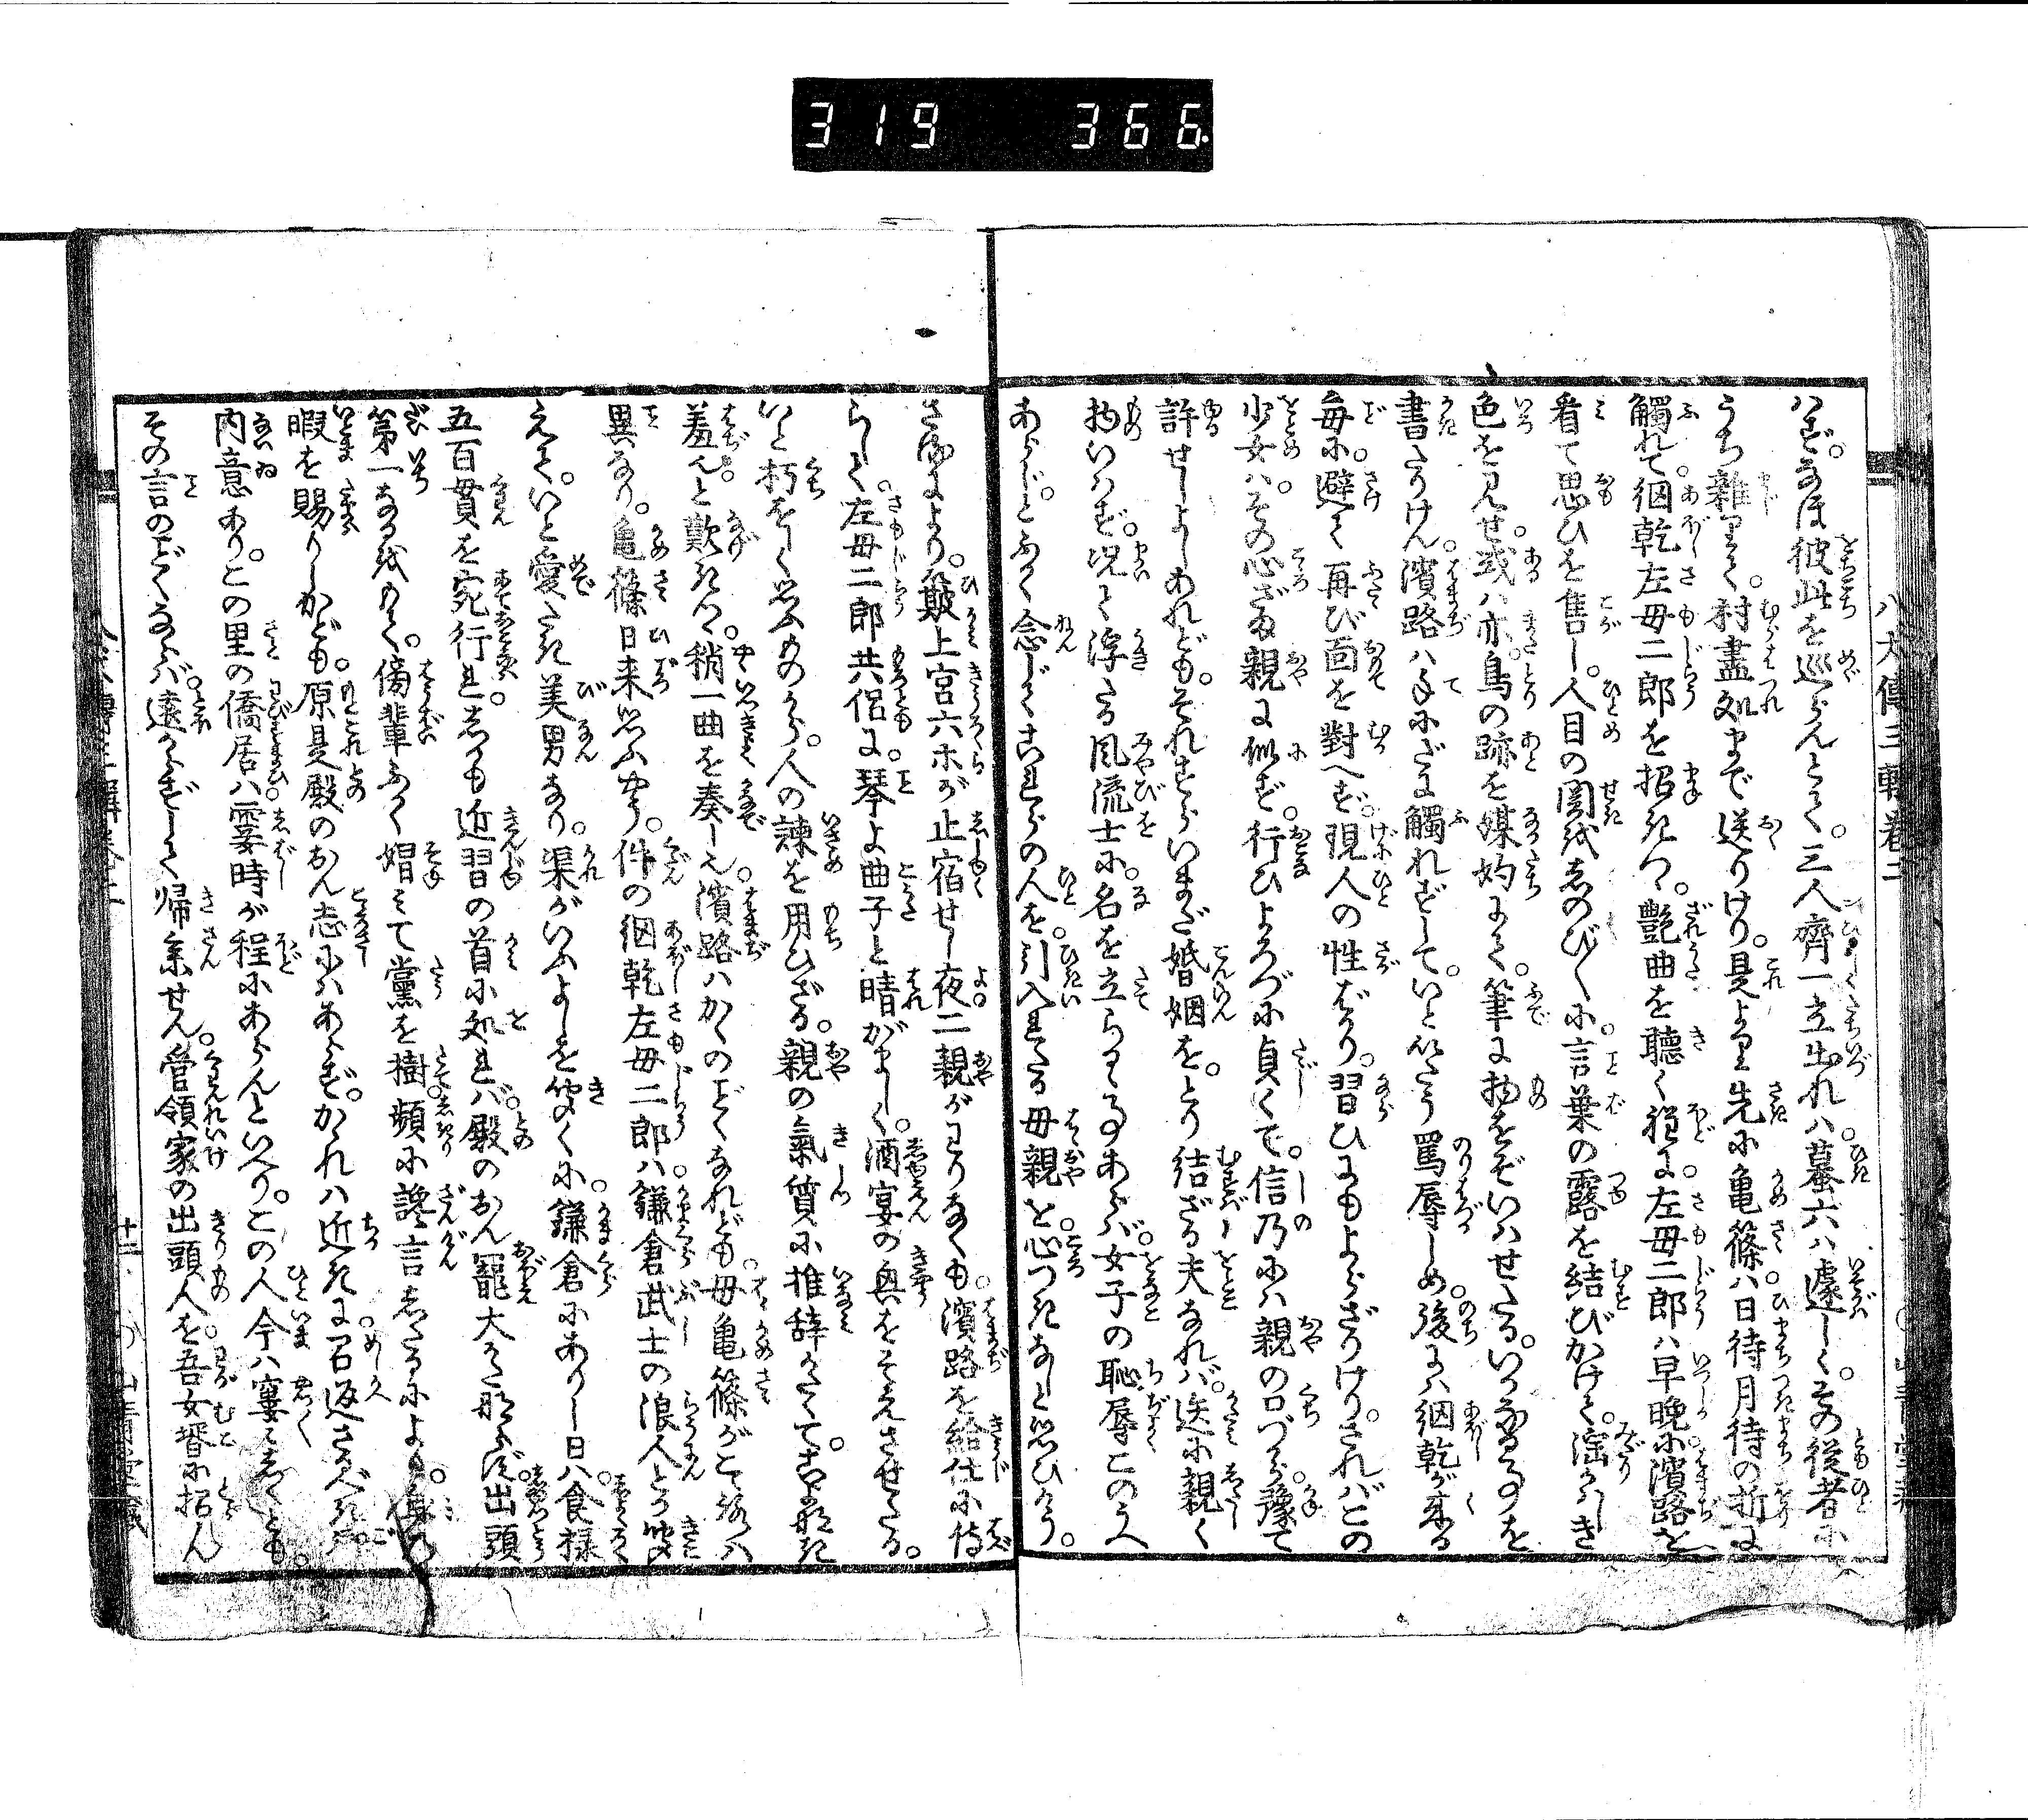 319 366
八犬傳三輯卷二
ハず。なほ彼此を巡らんとて。三人齊一立出れハ。蟇六ハ遽しく。その従者に
うち雜りて。村盡処まで送りけり。是より先に亀篠ハ。日待月待の折に
觸れて。網乾左母二郎を招きつゝ。艶曲を聽く程に。左母二郎ハ早晩に。濱路を
看て思ひを焦し。人目の関をしのび〳〵に。言葉の露を結びかけて。淫がハしき
色を見せ。或ハ亦。鳥の跡を媒妁にて。筆に物をぞいはせたる。いかなる事を
書たりけん。濱路ハ手にだに觸れずして。いと いたう罵辱しめ。後にハ網乾が来る
毎に。避て再び面を對へず。現人の性ばかり。習ひにもよらざりけり。されバこの
少女ハ。その心ざま親に似ず。行ひよろづに貞くて。信乃にハ親の口づから。豫て
許せしよしあれども。それすらいまだ婚姻を。とり結ざる夫なれバ。迭に親く
物いはず。况て浮たる風流士に。名を立らるゝ事あらバ。女子の恥辱このうへ
あらじ。とふかく念じてこれらの人を。引入れたる母親を。心つきなしと思ひけり。
さるにより。簸上宮六ホが止宿せし夜。二親がわりなくも。濱路を給仕に侍
らして。左母二郎共侶に。琴よ曲子と晴がましく。酒宴の興をそえさせたる。
いと朽をしく思ふものから。人の諫を用ひざる。親の氣質に推辞かねて。
羞。んと歎きつゝ。稍一曲を奏しえ。濱路ハかくのごとくなれども。母亀篠がこゝろハ
異なり。亀篠日来思ふやう。件の網乾左母二郎ハ。鎌倉武士の浪人とか。
えて。いと愛たき美男なり。渠がいふよしを聞くに。鎌倉にありし日ハ。食禄
五百貫を宛行れ。しかも近習の首に処れバ。殿のおん寵大かたならず。出頭
第一なるをもて。傍輩ふかく媢みて黨を樹。頻に讒言したるによりて。
暇を賜りしかども。原是殿のおん志にハあらず。かゝれハ近きに。召返さるべき
内意あり。この里の僑居ハ。霎時が程にあらんといへり。この人今ハ窶しくとも。
その言のごとくならバ。遠からずして帰参せん。管領家の出頭人を。吾女壻に招ん
十二